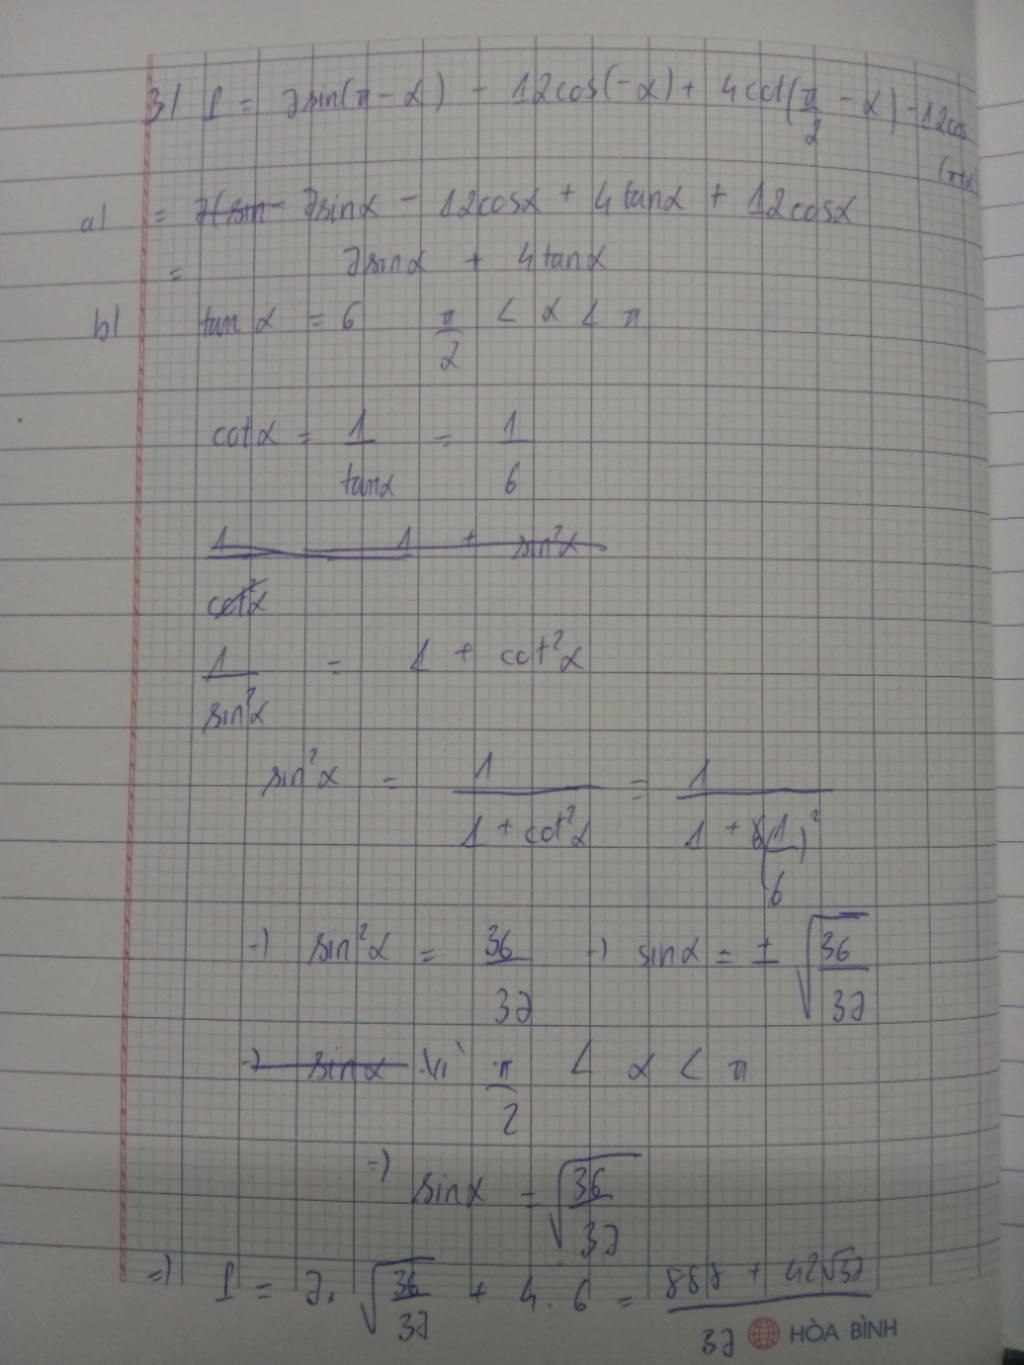 3) P = 7sin(π - α) - 12cos(-α) + 4cot(π/2 - α) - 12cos
(π+α
a) = 7(sin 7sinα - 12cosα + 4tanα + 12cosα
= 7sinα + 4tanα
b) tan α = 6 π/2 < α < π
cotα = 1/tanα = 1/6
1/cot²α 1 + sin²α
1/sin²α = 1 + cot²α
sin²α = 1/(1 + cot²α) = 1/(1 + (1/6)²)
→ sin²α = 36/37 → sinα = ± √(36/37)
→ sinα Vì π/2 < α < π
⇒ sinα = √(36/37)
⇒ P = 7. √(36/37) + 4. 6 = (888 + 42√37)/37
HÒA BÌNH